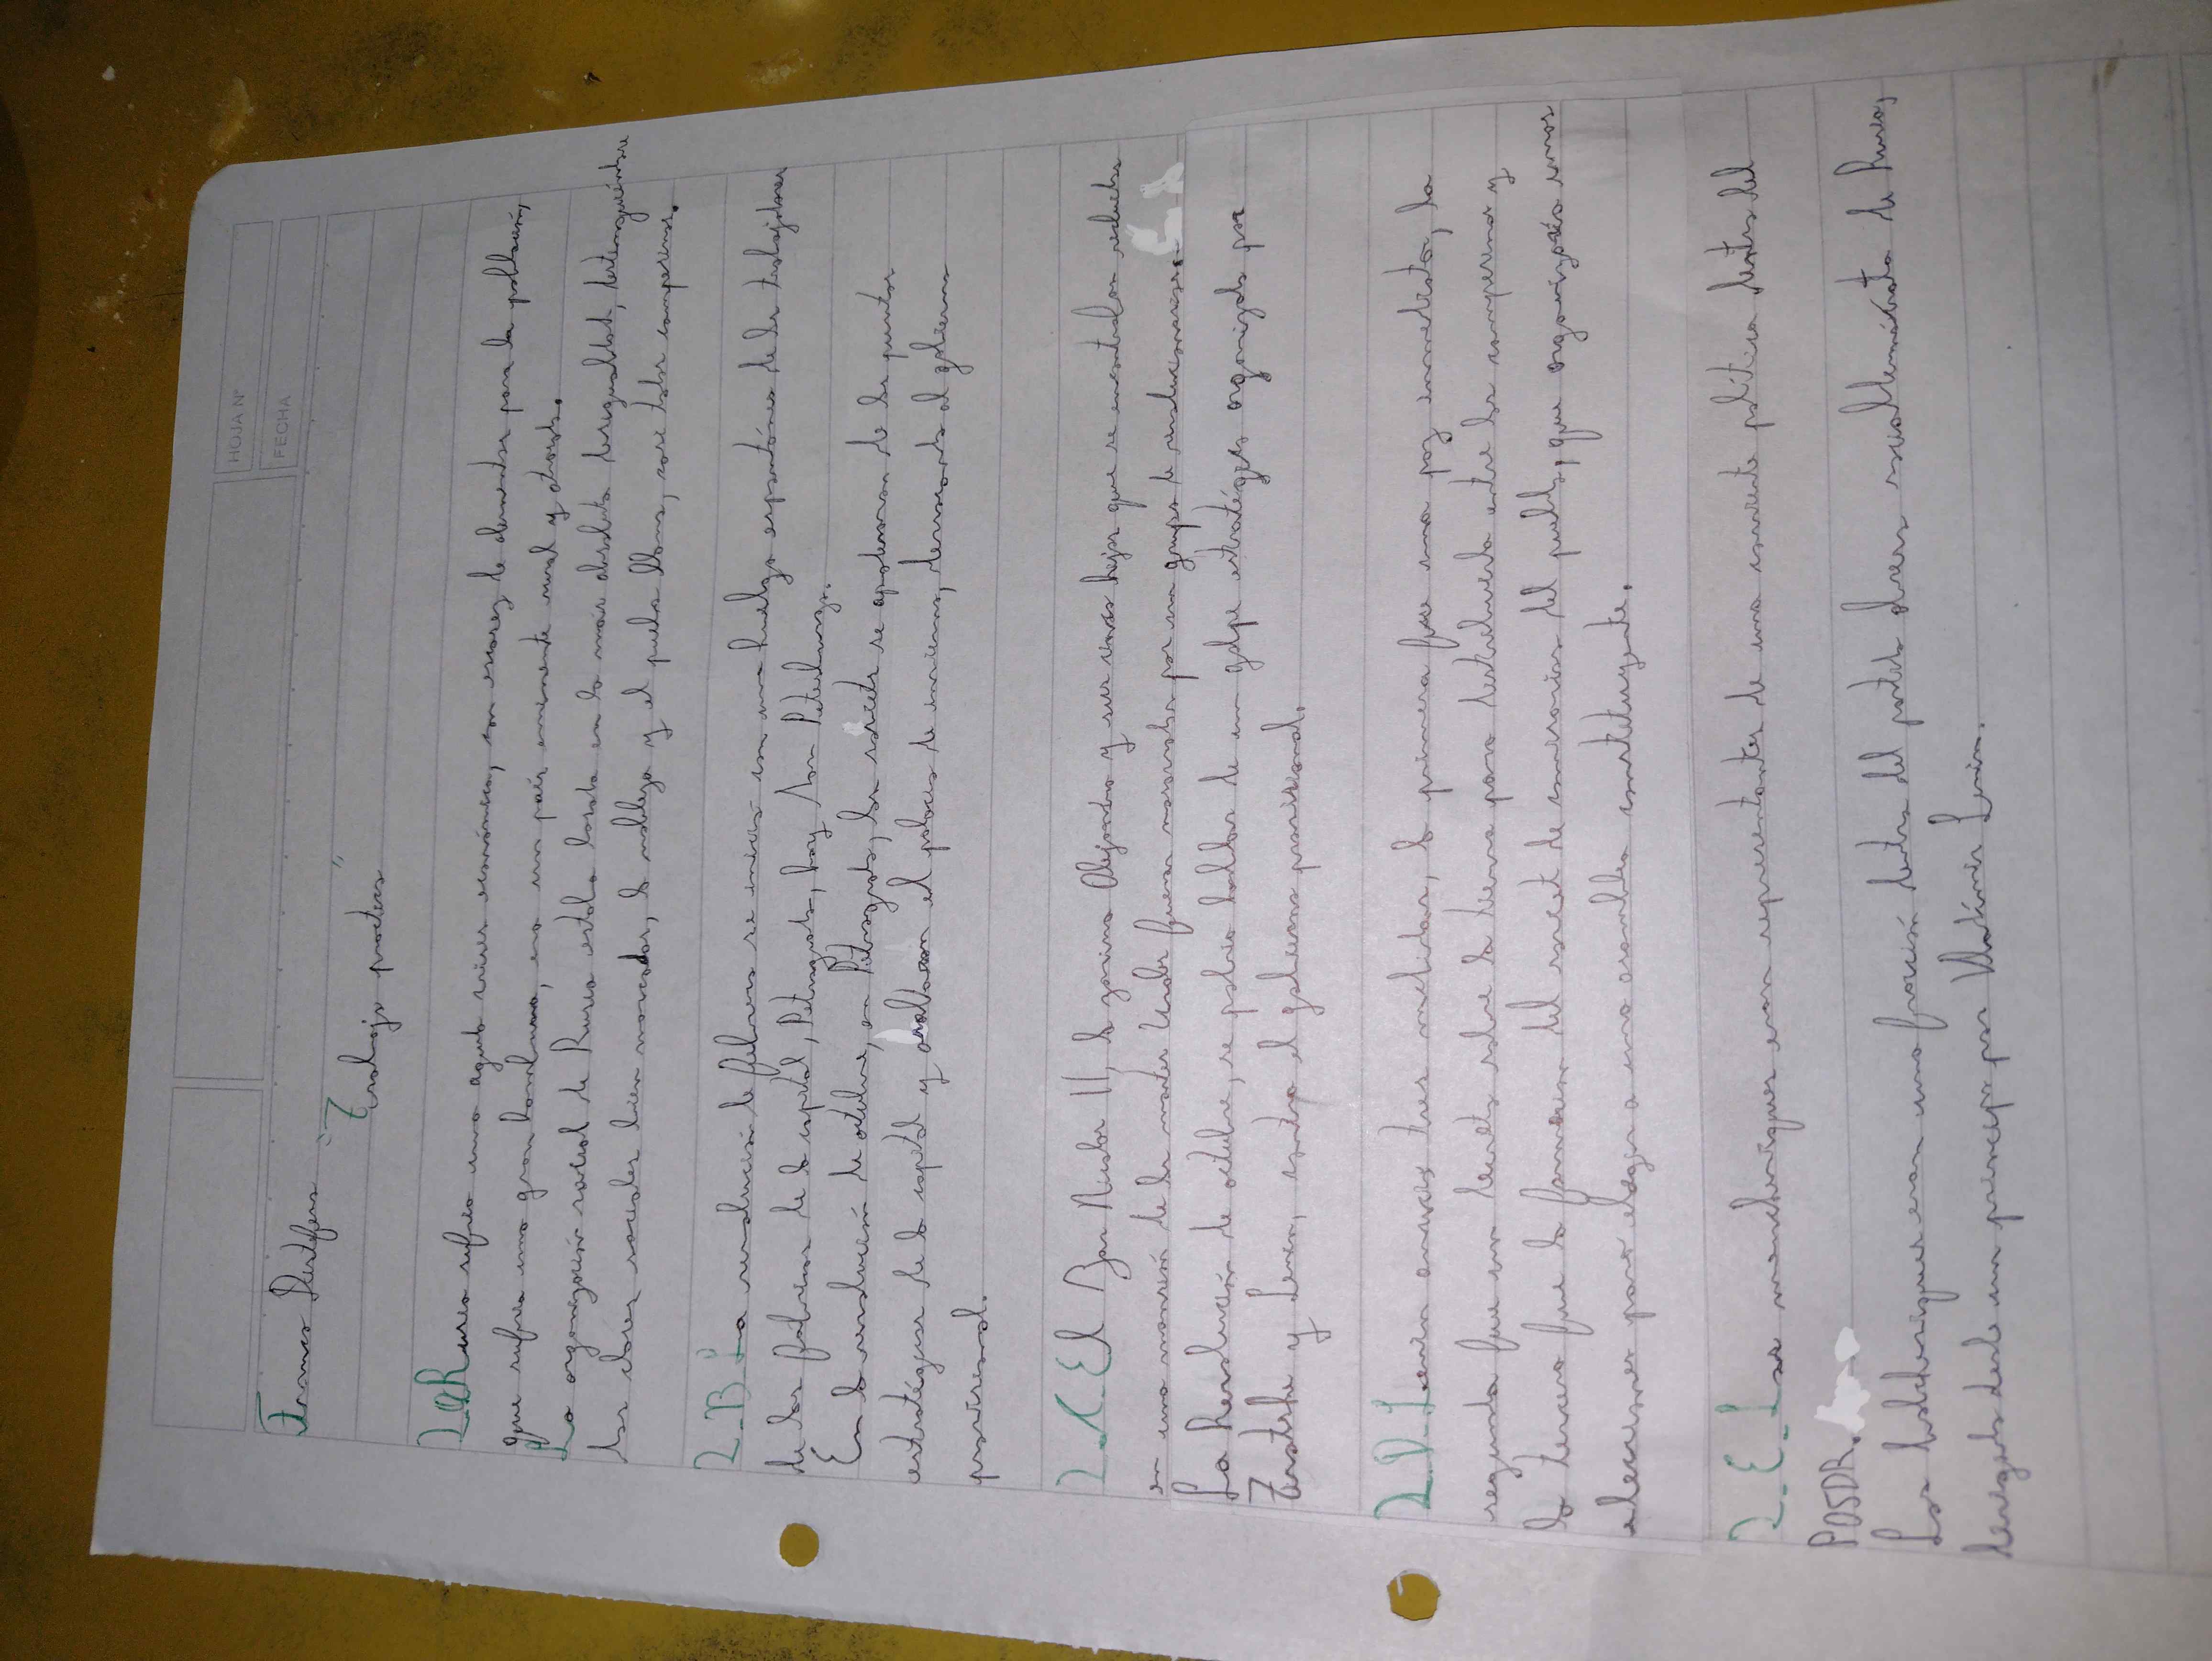 HOJA N°
FECHA
"Trabajo practico"
2.A Rusia sufria una aguda crisis económica, con escasez de alimentos para la población,
que sufria una gran hambruna, era un país inmensamente rural y atrasado.
La organización social de Rusia estaba basada en la más absoluta desigualdad, distinguiéndose
dos clases sociales bien marcadas, la nobleza y el pueblo llano, casi todos campesinos.
2.B La revolución de febrero se inició con una huelga espontánea de los trabajadores
de las fabricas de la capital, Petrogrado, hoy San Petersburgo.
En la revolución de octubre, en Petrogrado, los soviets se apoderaron de los puntos
estratégicos de la capital y asaltaron el palacio de invierno, derrocando al gobierno
provisional.
2.C El Zar Nicolás II, la zarina Alejandra y sus cinco hijos que se encontraban recluidos
en una mansión de los montes Urales fueron masacrados por un grupo de revolucionarios.
La Revolución de octubre, se podria hablar de un golpe estratégico organizado por
Trotsky y Lenin, contra el gobierno provisional.
2.D Lenin anunció tres medidas, la primera fue una paz inmediata, la
segunda fue un decreto sobre la tierra para distribuirla entre los campesinos y
la tercera fue la formación del soviet de comisarios del pueblo, que organizarían unas
elecciones para elegir a una asamblea constituyente.
2.E Los mencheviques eran representantes de una corriente política dentro del
POSDR.
Los bolcheviques eran una facción dentro del partido obrero socialdemócrata de Rusia,
dirigido desde un principio por Vladímir Lenin.